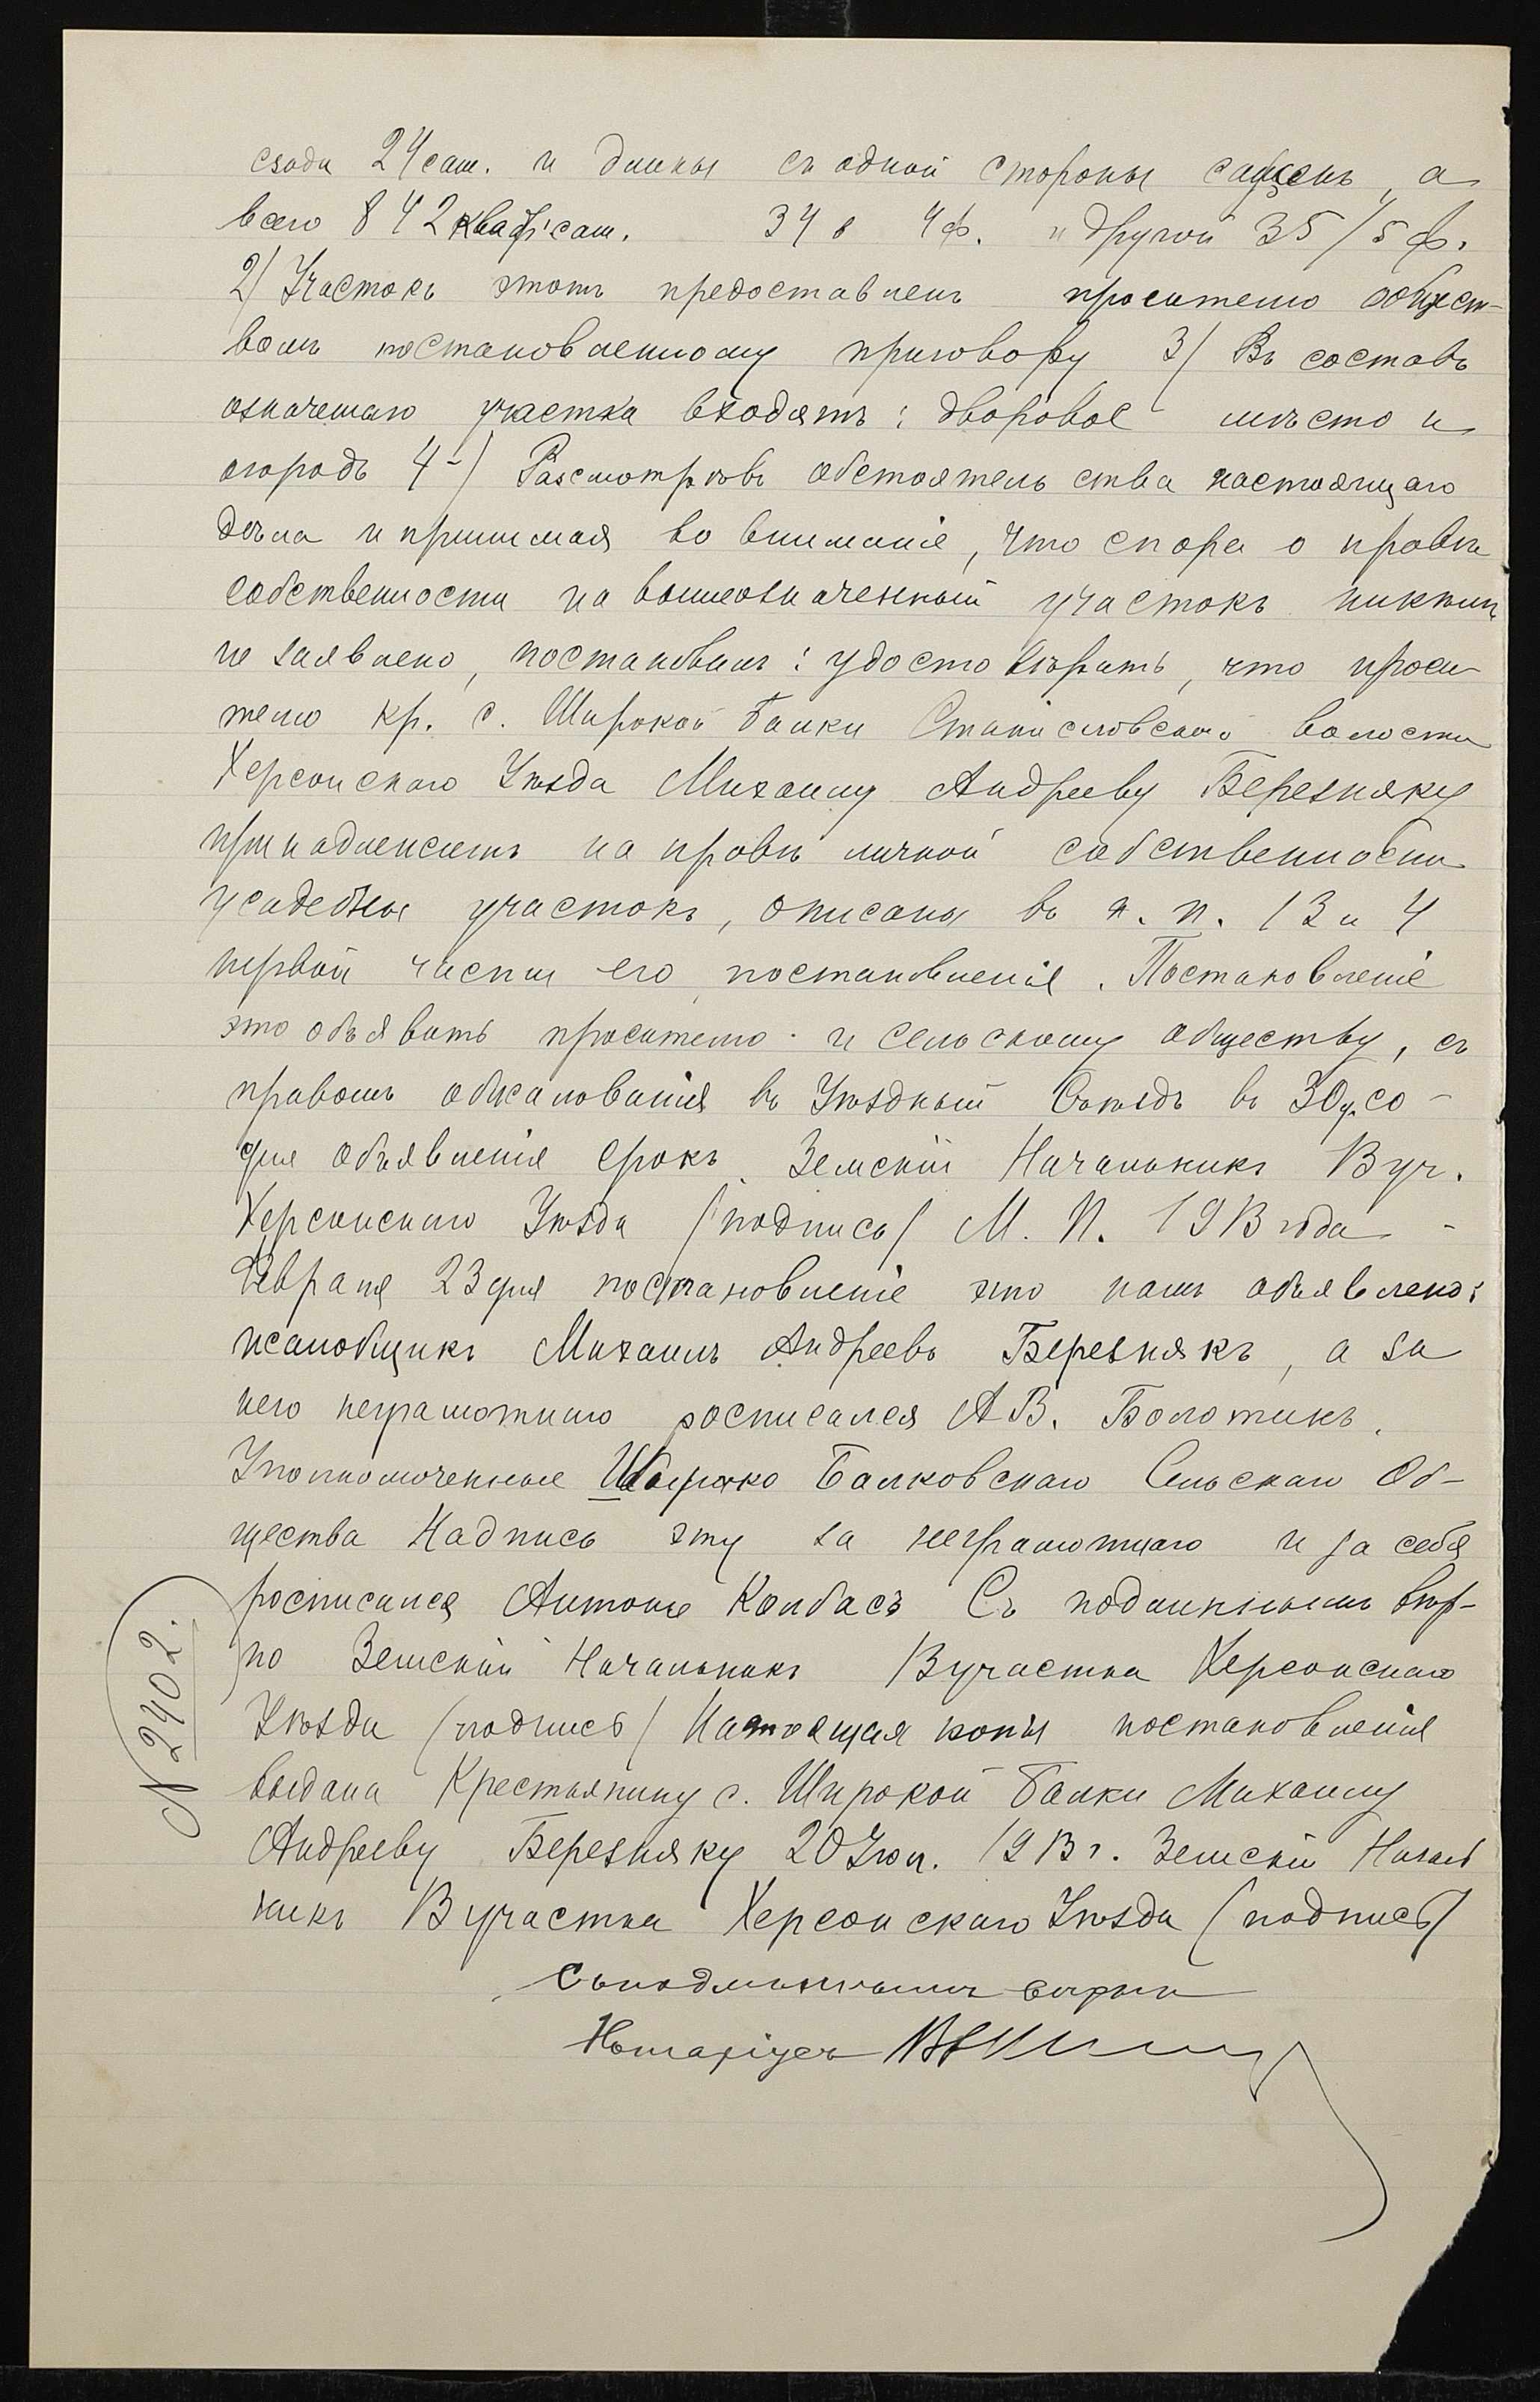 сзади 24 саж. и длины съ одной стороны сажень, а
всего 842 квад. саж. 34 в 4 ф. и другой 35/5 ф.
2) Участокъ этотъ предоставленъ просителю общест-
вомъ постановленному приговору 3) Въ составъ
означенаго участка входятъ: дворовое мѣсто и
огородъ 4-) Разсмотрѣвъ обстоятельства настоящаго
дѣла и принимая во вниманіе, что спора о правѣ
собственности на вышеозначенный участокъ никѣмъ
не заявлено, постановилъ: удостовѣрить, что проси-
телю кр. с. Широкой Балки Станиславской волости
Херсонскаго Уѣзда Михаилу Андрееву Березняку
принадлежитъ на правѣ личной собственности
усадебны участокъ, описаны въ п. п. 1 3 и 4
первой части его постановленія. Постановленіе
это объявить просителю и сельскому обществу, съ
правомъ обжалованія въ Уѣздный Съѣздъ въ 30 д. со
дня объявленія срокъ. Земскій Начальникъ 13 уч.
Херсонскаго Уѣзда (подпись) М. П. 1913 года -
Февраля 23 дня постановленіе это намъ объявлено:
жалобщикъ Михаилъ Андреевъ Березнякъ, а за
него неграмотнаго росписался А В. Болотикъ.
Уполномоченные Широко Балковскаго Сельскаго Об-
щества Надпись эту за неграмотнаго и за себя
росписался Антонъ Колбасъ Съ подлиннымъ вѣр-
но Земскій Начальникъ 13 участка Херсонскаго
Уѣзда (подпись) Настоящая копія постановленія
выдана Крестьянину с. Широкой Балки Михаилу
Андрееву Березняку 20 Іюл. 1913 г. Земскій Началь
никъ 13 участка Херсонскаго Уѣзда (подпись)
Съ подлиннымъ вѣрно
Нотаріусъ
N 2402.